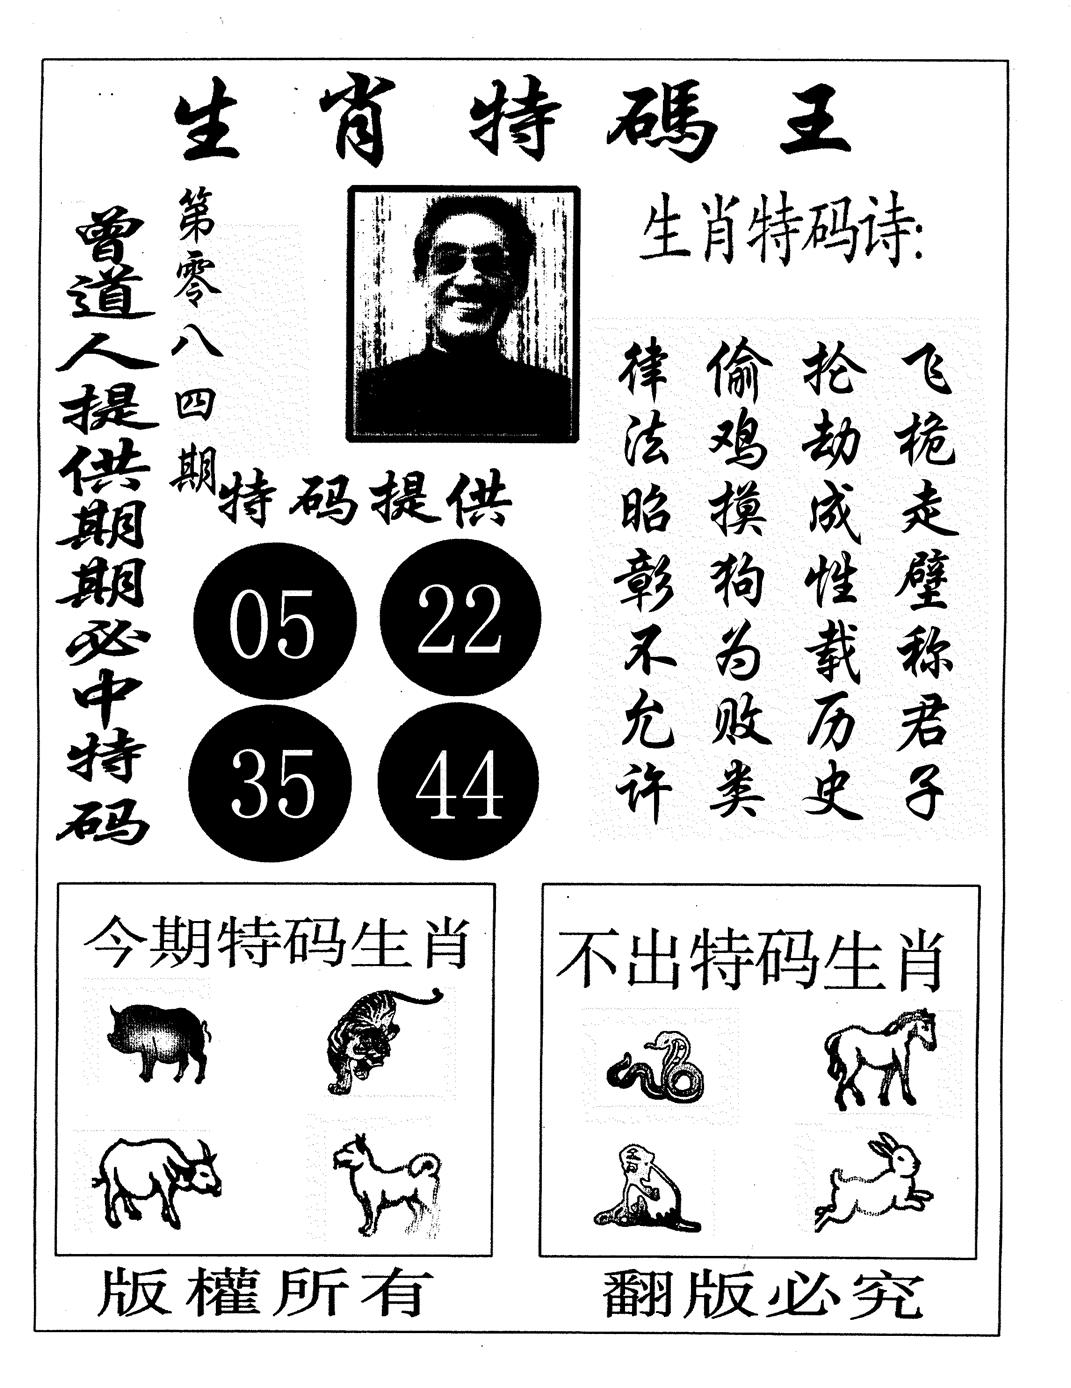 生肖特碼王
曾道人提供期期必中特码
第零八四期
生肖特码诗:
飞桅走壁称君子
抡劫成性载历史
偷鸡摸狗为败类
律法昭彰不允许
特码提供
05 22
35 44
今期特码生肖
不出特码生肖
版權所有
翻版必究